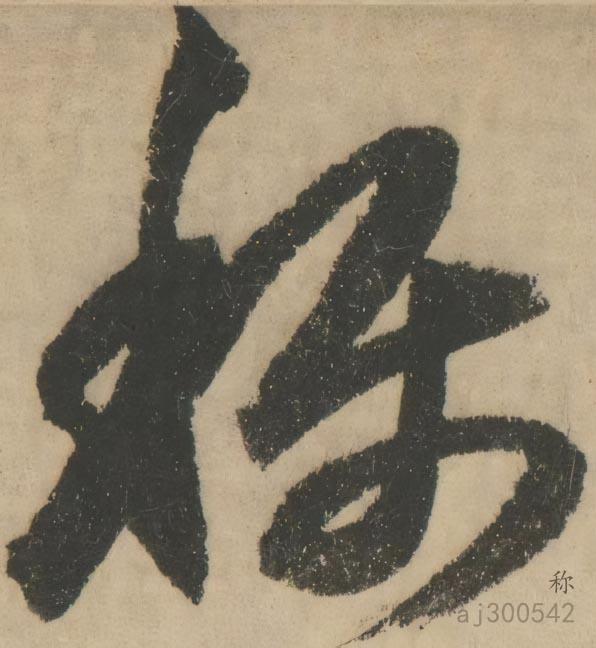 称
称
aj300542